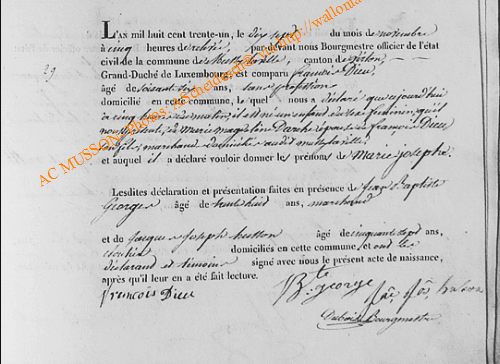 L'AN mil huit cent trente-un, le dix sept du mois de novembre
à cinq heures de relevée, par-devant nous Bourgmestre officier de l'état
civil de la commune de canton de Virton,
Grand-Duché de Luxembourg, est comparu françois Dieu,
29
âgé de soixante six ans, sans profession
domicilié en cette commune, lequel nous a déclaré que aujourd'hui
à cinq heures du matin, est né un enfant du sexe feminin, qu'il
nous présente, de Marie épouse de françois Dieu
son fils, marchand domicilié audit
et auquel il a déclaré vouloir donner les prénoms de Marie josephe.
Lesdites déclaration et présentation faites en présence de jean Baptiste
George âgé de trente huit ans, marchand
et de jacques joseph husson âgé de cinquante sept ans,
domiciliés en cette commune, et ont les
déclarant et témoins signé avec nous le présent acte de naissance,
après qu'il leur en a été fait lecture.
francois Dieu
Bte george
Bourgmestre
AC MUSSON Photos: http://wallonia